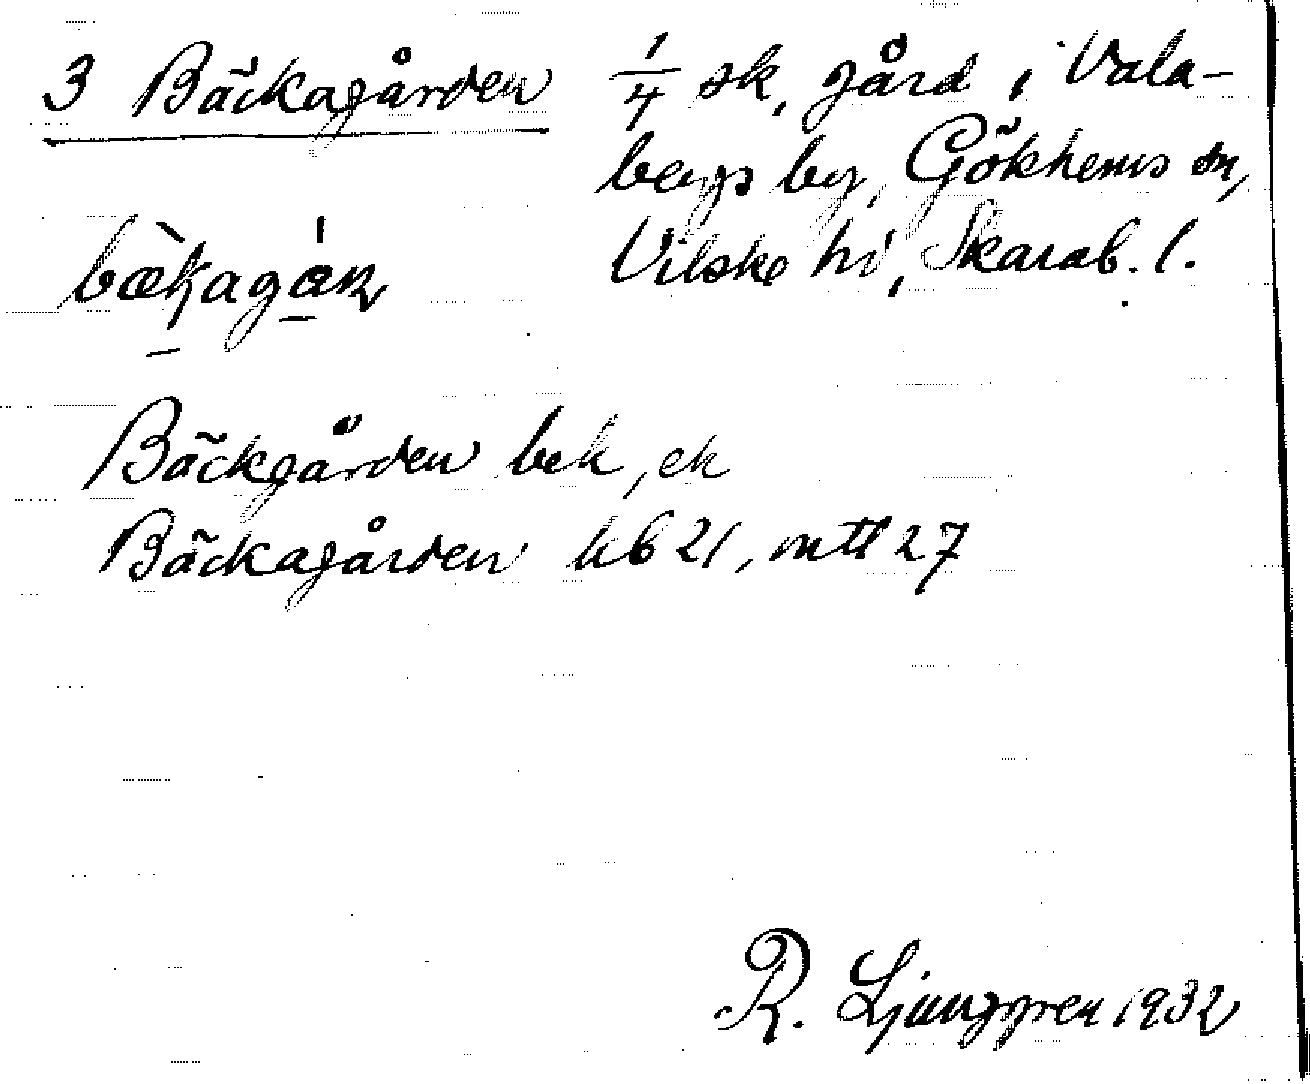 3 Bäckagården 1/4 sk, gård i Vala-
bergs by, Gökhems sn,
Vilske hd, Skarab. l.
bæka
Bäckgården bek, ek
Bäckagården kb 21, mtl 27
R. Ljunggren 1932